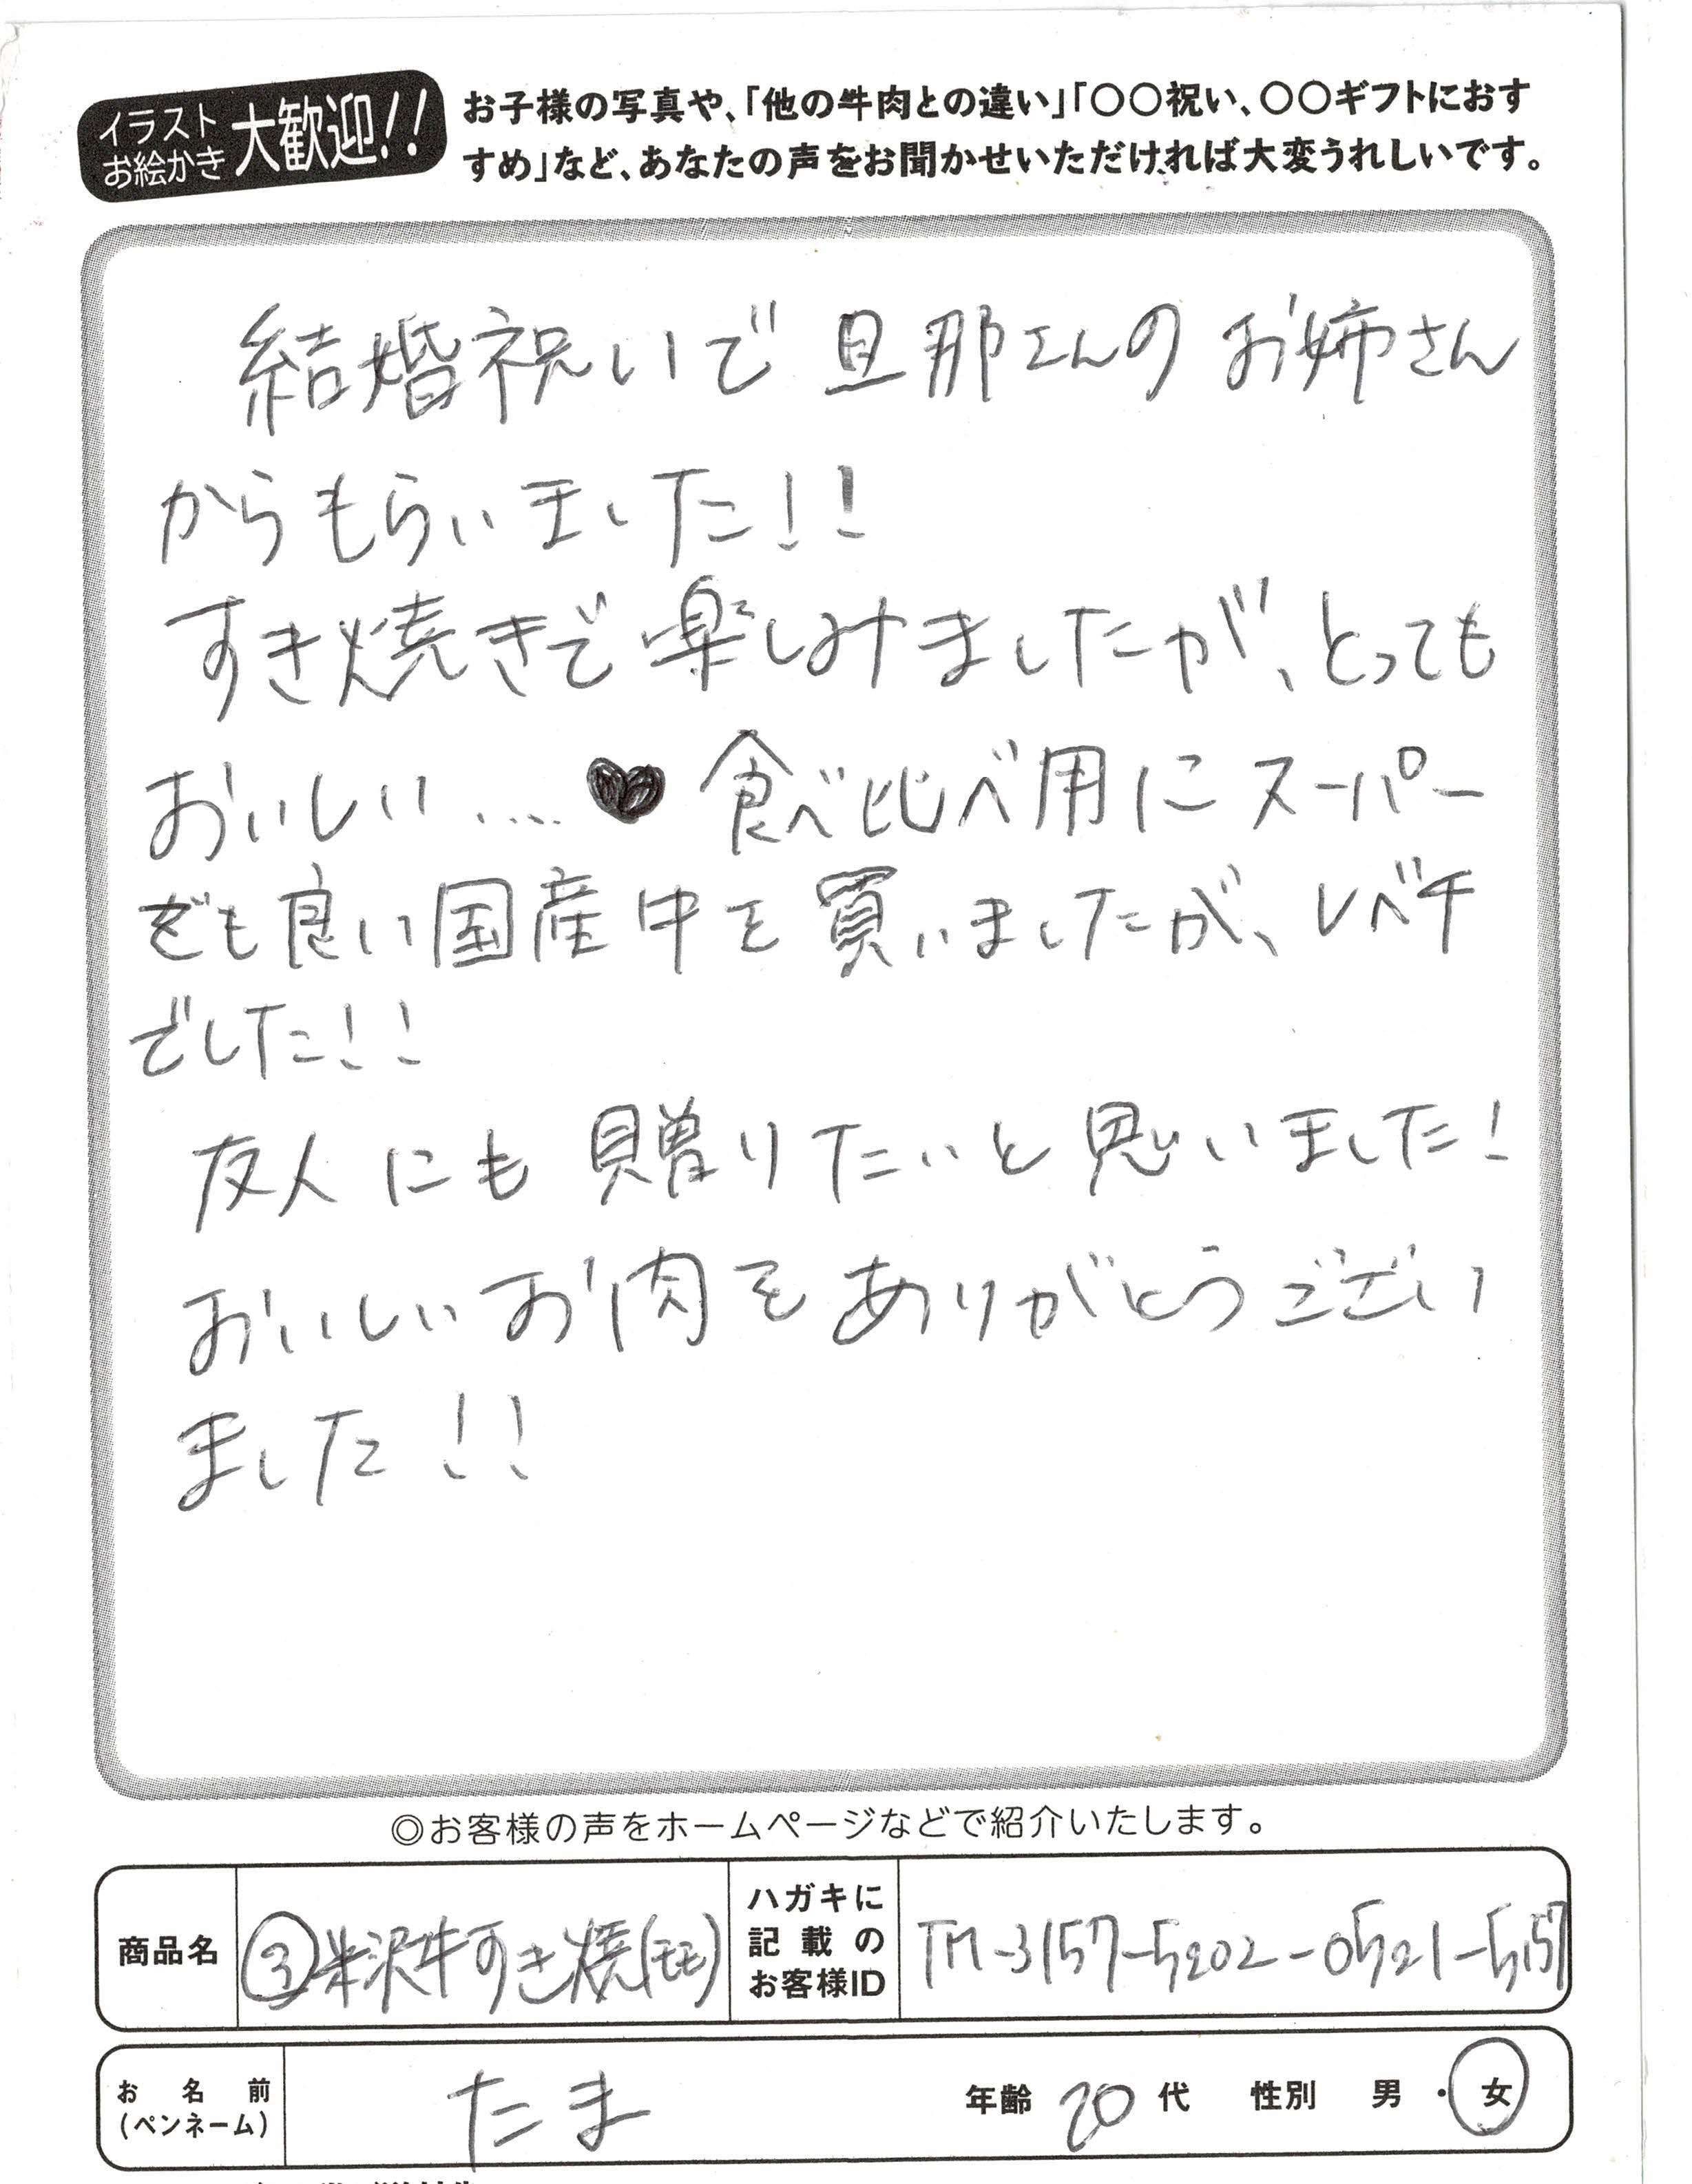 イラスト
お絵かき
大歓迎!!
お子様の写真や、「他の牛肉との違い」「〇〇祝い、〇〇ギフトにおす
すめ」など、あなたの声をお聞かせいただければ大変うれしいです。
結婚祝いで旦那さんのお姉さん
からもらいました!!
すき焼きで楽しみましたが、とっても
おいしい…♥ 食べ比べ用にスーパー
でも良い国産牛を買いましたが、レベチ
でした!!
友人にも贈りたいと思いました!
おいしいお肉をありがとうござい
ました!!
◎お客様の声をホームページなどで紹介いたします。
商品名
③米沢牛すき焼(モモ)
ハガキに
記載の
お客様ID
TM-3157-5202-0521-5157
お名前
(ペンネーム)
たま
年齢 20 代 性別 男・女